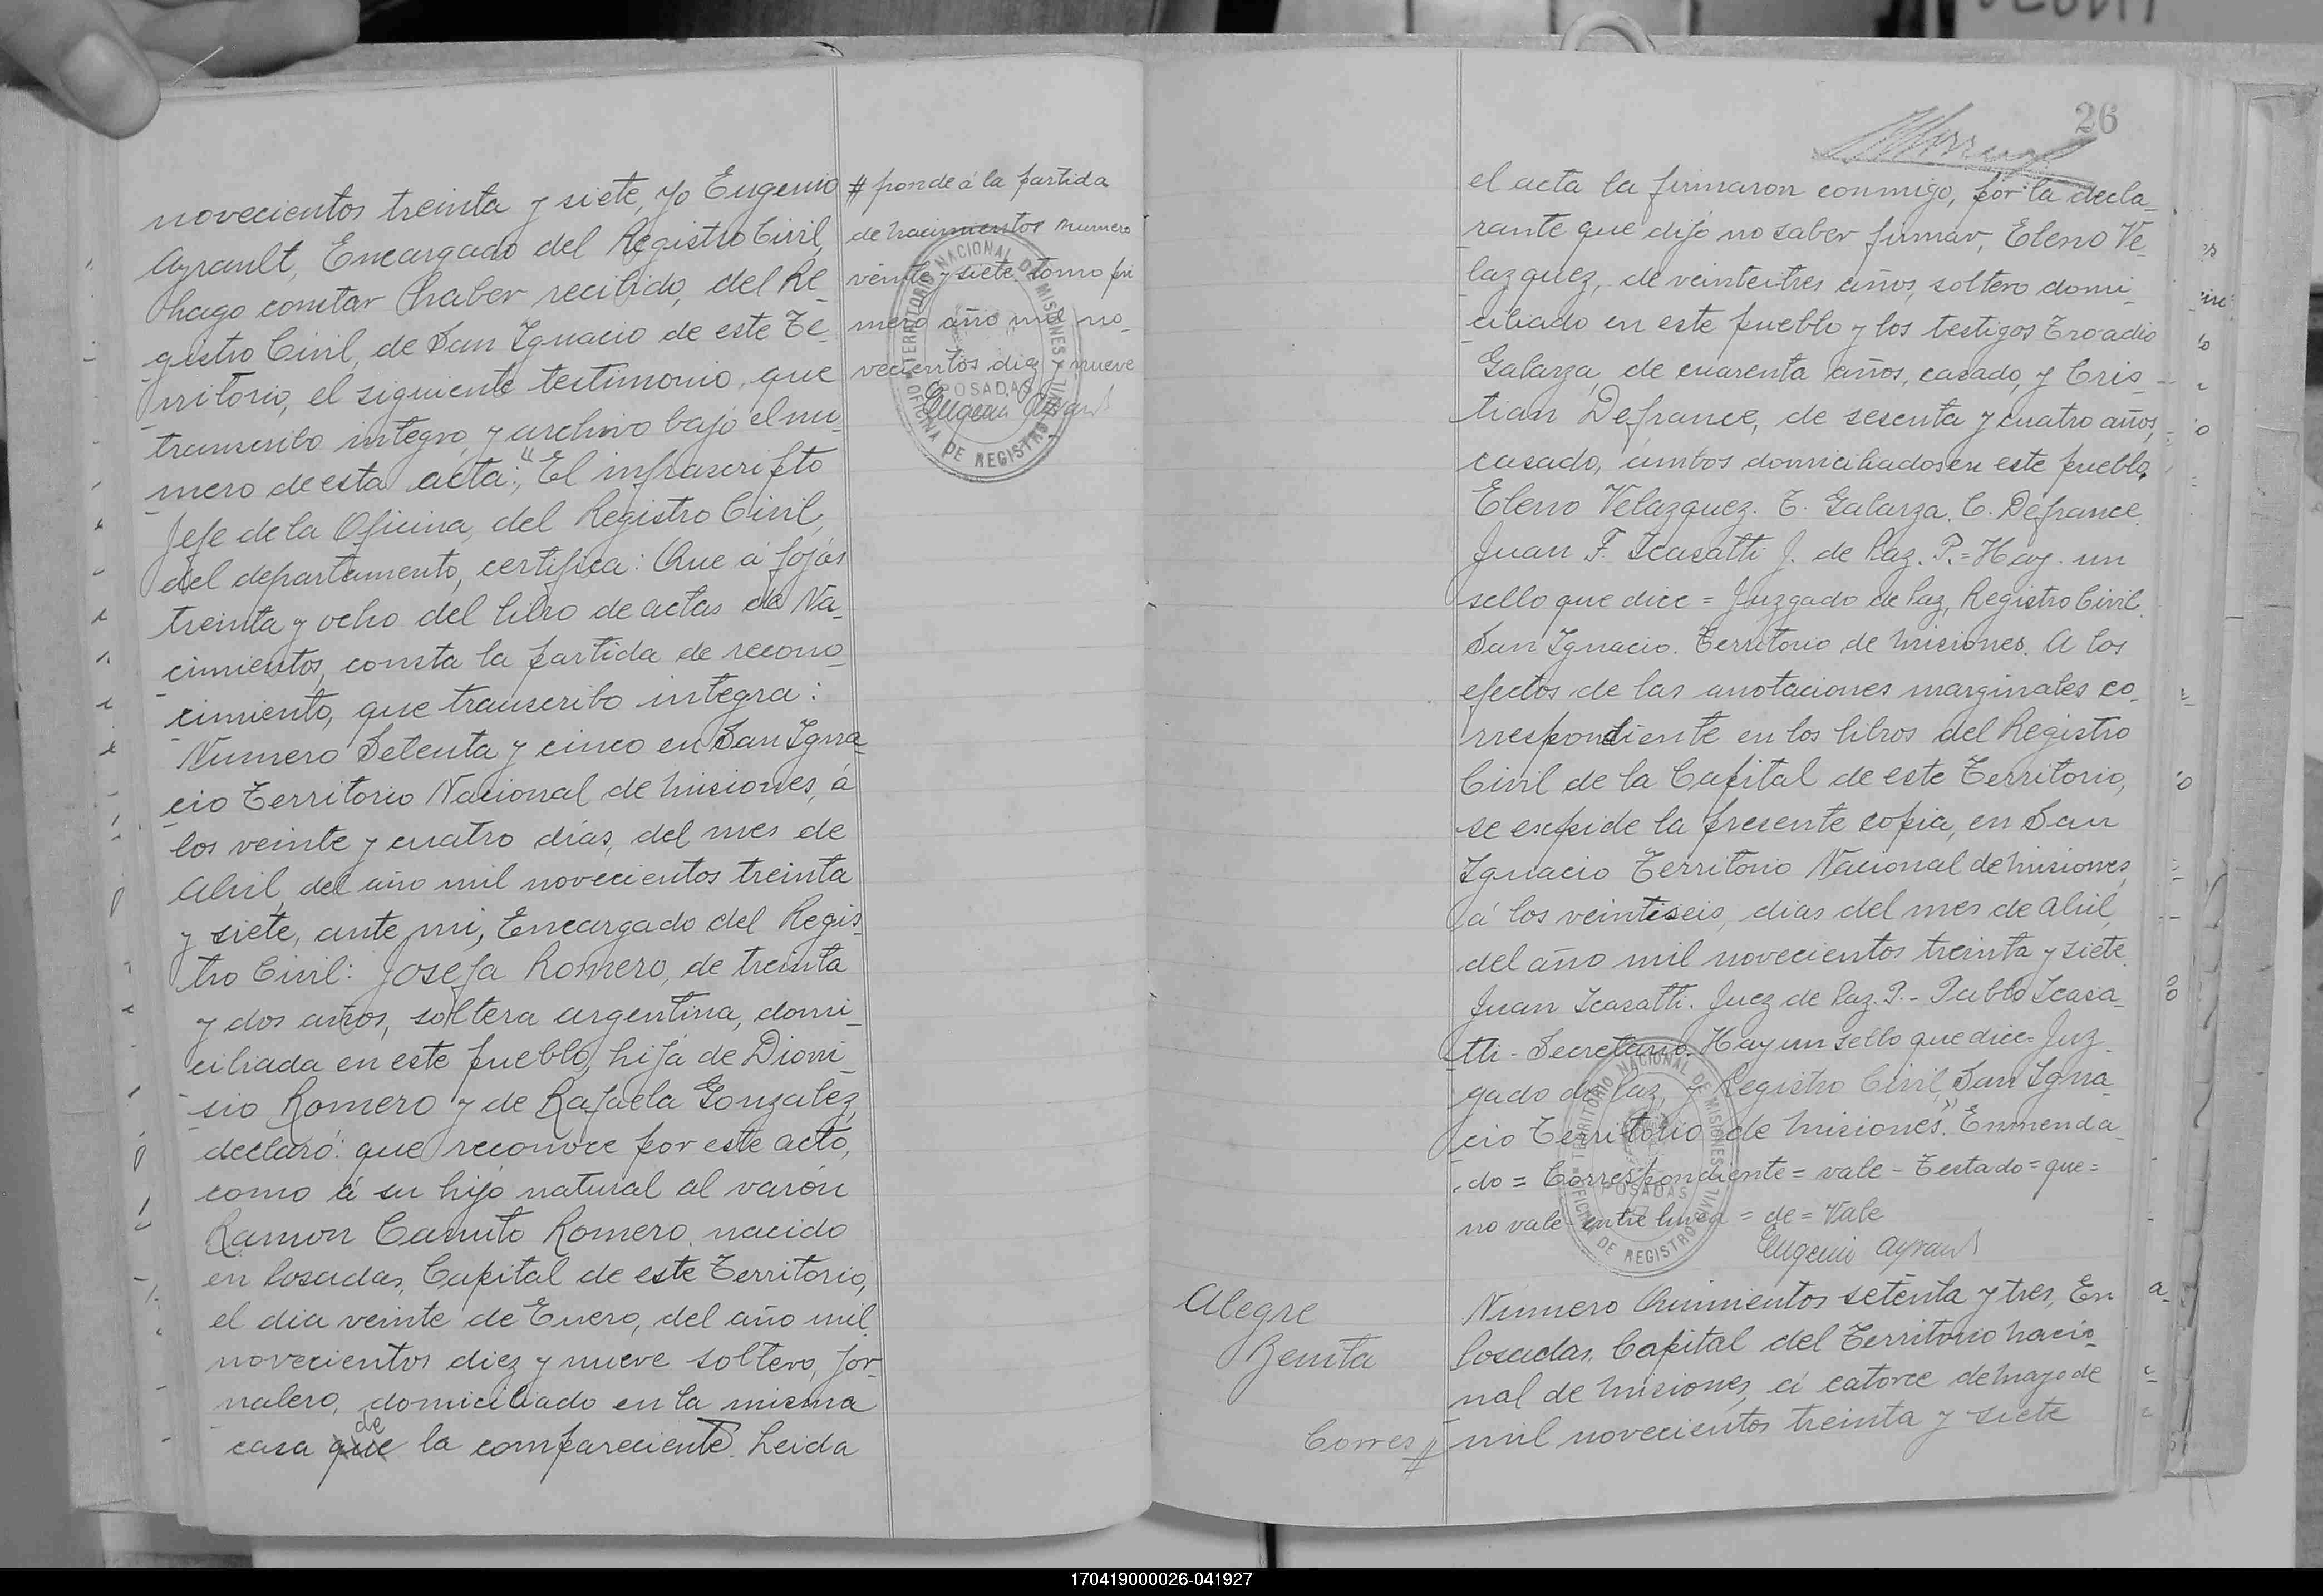 novecientos treinta y siete, yo Eugenio
Ayrault, Encargado del Registro Civil,
hago constar haber recibido, del Re-
gistro Civil, de San Ignacio de este Te-
rritorio, el siguiente testimonio, que
transcribo integro, y archivo bajo el nu-
mero de esta acta: "El infrascripto
Jefe de la Oficina, del Registro Civil,
del departamento, certifica: Que á fojas
treinta y ocho del libro de actas de Na-
cimientos, consta la partida de recono-
cimiento, que transcribo integra:
Numero Setenta y cinco en San Igna-
cio Territorio Nacional de Misiones, á
los veinte y cuatro dias, del mes de
Abril, del año mil novecientos treinta
y siete, ante mi, Encargado del Regis-
tro Civil: Josefa Romero, de treinta
y dos años, soltera argentina, domi-
ciliada en este pueblo, hija de Dioni-
sio Romero y de Rafaela Gonzalez,
declaró: que reconoce por este acto,
como á su hijo natural al varón
Ramon Canuto Romero, nacido
en Posadas, Capital de este Territorio,
el dia veinte de Enero, del año mil
novecientos diez y nueve soltero, jor-
nalero, domiciliado en la misma
de
casa que la compareciente. Leida
# ponde á la partida
de nacimientos numero
veinte y siete tomo pri
mero año mil no-
vecientos diez y nueve
Eugenio Ayrault
TERRITORIO NACIONAL DE MISIONES
POSADAS
OFICINA DE REGISTRO CIVIL
26
el acta la firmaron conmigo, por la decla-
rante que dijo no saber firmar, Eleno Ve-
lazquez, de veintitres años, soltero domi-
ciliado en este pueblo y los testigos Troadio
Galarza, de cuarenta años, casado, y Cris-
tian Defrance, de sesenta y cuatro años,
casado, ambos domiciliados en este pueblo.
Eleno Velazquez. T. Galarza. C. Defrance.
Juan F. Scasatti J. de Paz. P.= Hay un
sello que dice = Juzgado de Paz, Registro Civil.
San Ignacio. Territorio de Misiones. A los
efectos de las anotaciones marginales co-
rrespondiente en los libros del Registro
Civil de la Capital de este Territorio,
se expide la presente copia, en San
Ignacio Territorio Nacional de Misiones,
á los veintiseis, dias del mes de Abril,
del año mil novecientos treinta y siete.
Juan Scasatti. Juez de Paz. P.- Pablo Scasa-
tti - Secretario. Hay un sello que dice= Juz-
gado de Paz, y Registro Civil, San Igna-
cio Territorio de Misiones". Enmenda-
do = Correspondiente = vale - Testado = que =
no vale - entre linea = de = Vale
Eugenio Ayrault
TERRITORIO NACIONAL DE MISIONES
POSADAS
OFICINA DE REGISTRO CIVIL
Alegre
Benita
Corres #
Numero Quinientos setenta y tres, En
Posadas, Capital del Territorio Nacio-
nal de Misiones, á catorce de Mayo de
mil novecientos treinta y siete
170419000026-041927